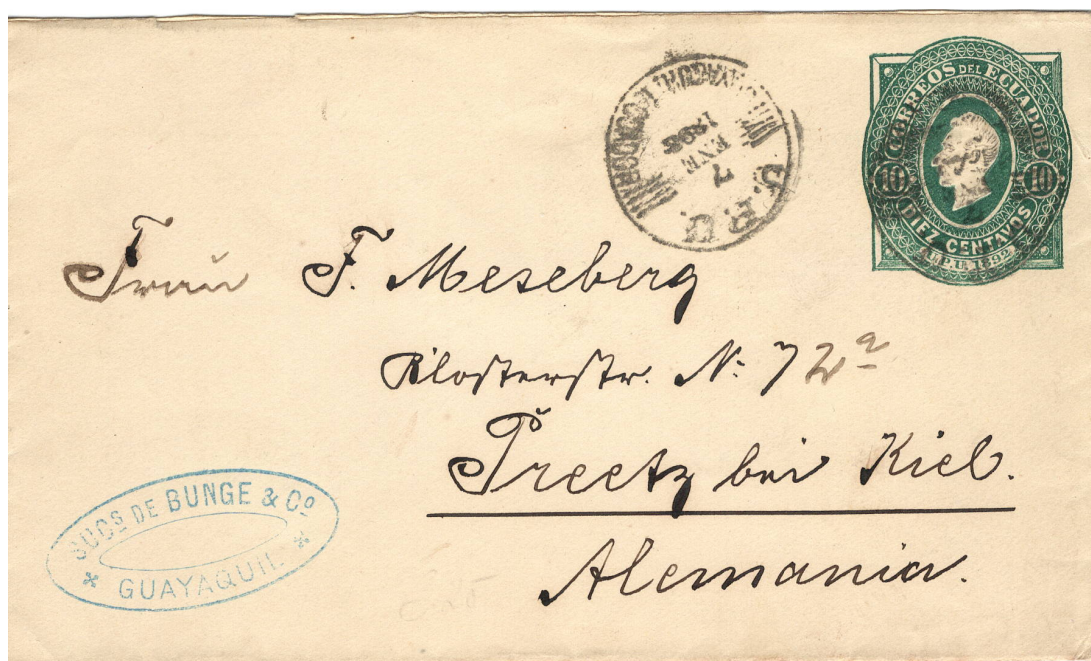 CORREOS DEL ECUADOR
10 10
DIEZ CENTAVOS
U.P.U. 1892
7
ENE
U.P.U.
Frau F. Meseberg
Klosterstr. N: 72a
Preetz bei Kiel.
Alemania.
SUCS DE BUNGE & Co
GUAYAQUIL